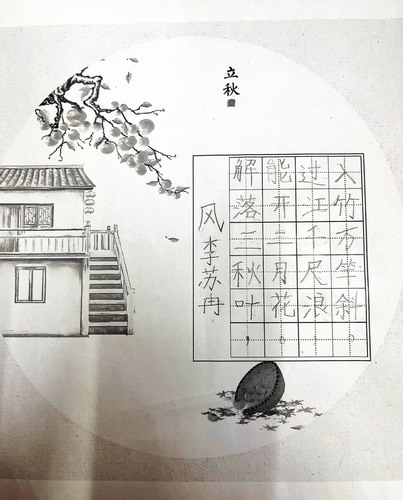 立秋
风 李苏冉
解落三秋叶，
能开二月花。
过江千尺浪，
入竹万竿斜。